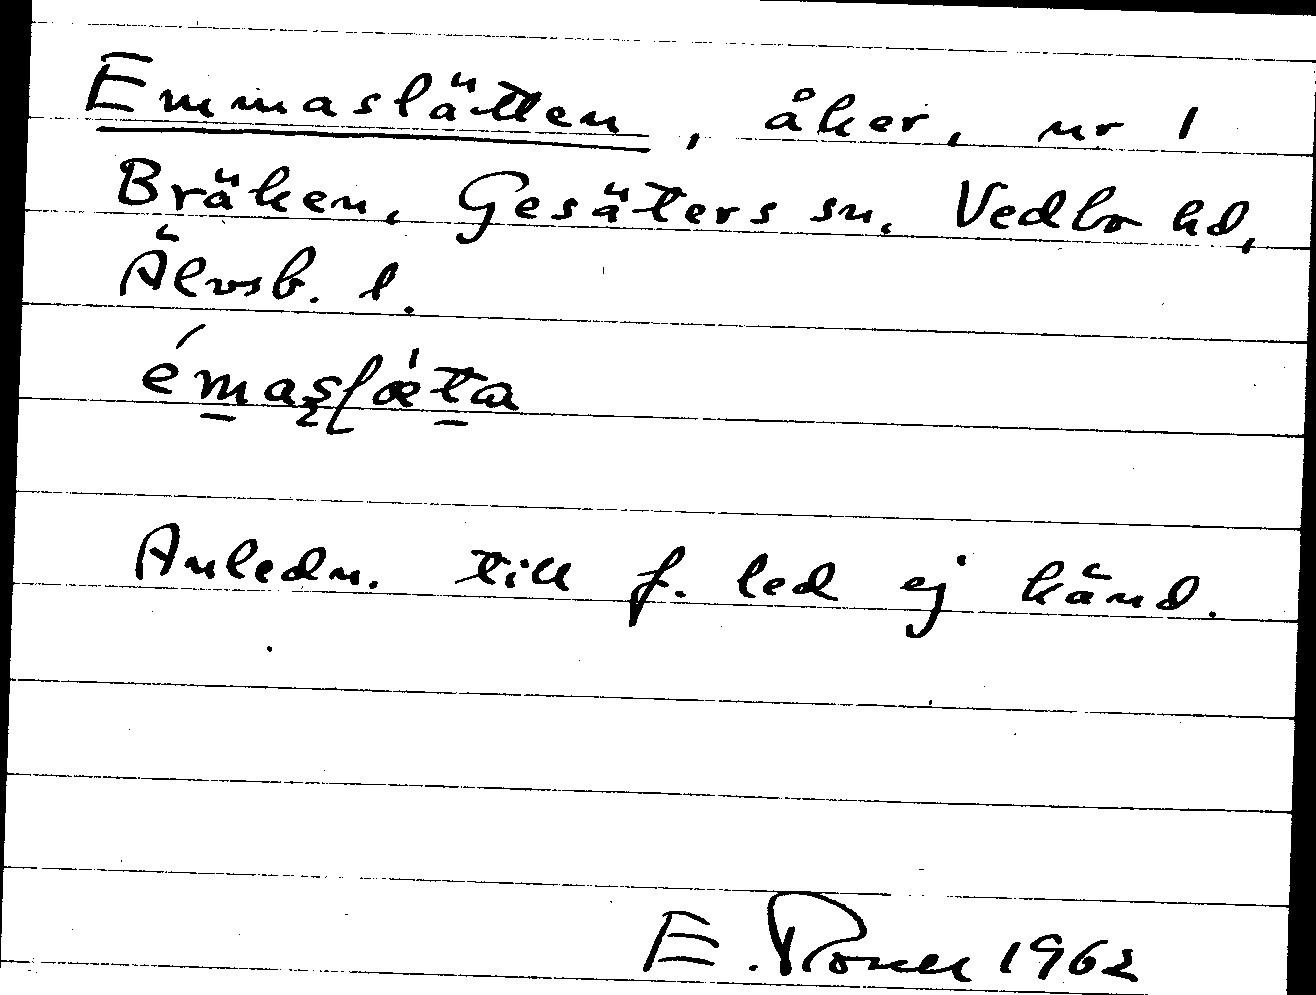 Emmaslätten, åker, nr 1
Bräken, Gesäters sn, Vedbo hd,
Älvsb. l.
émaslǽta
Anledn. till f. led ej känd.
E. 1962